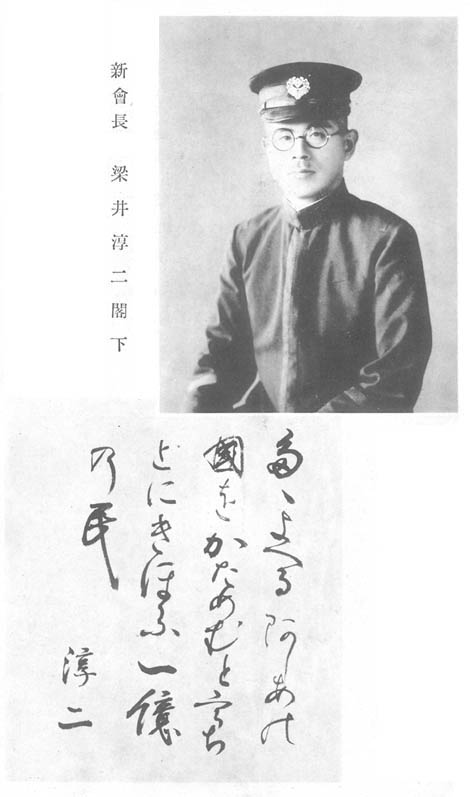 新會長　梁井淳二閣下
多ゝよへる
國をかためむとうち
とにきほふ一億
乃民
淳二